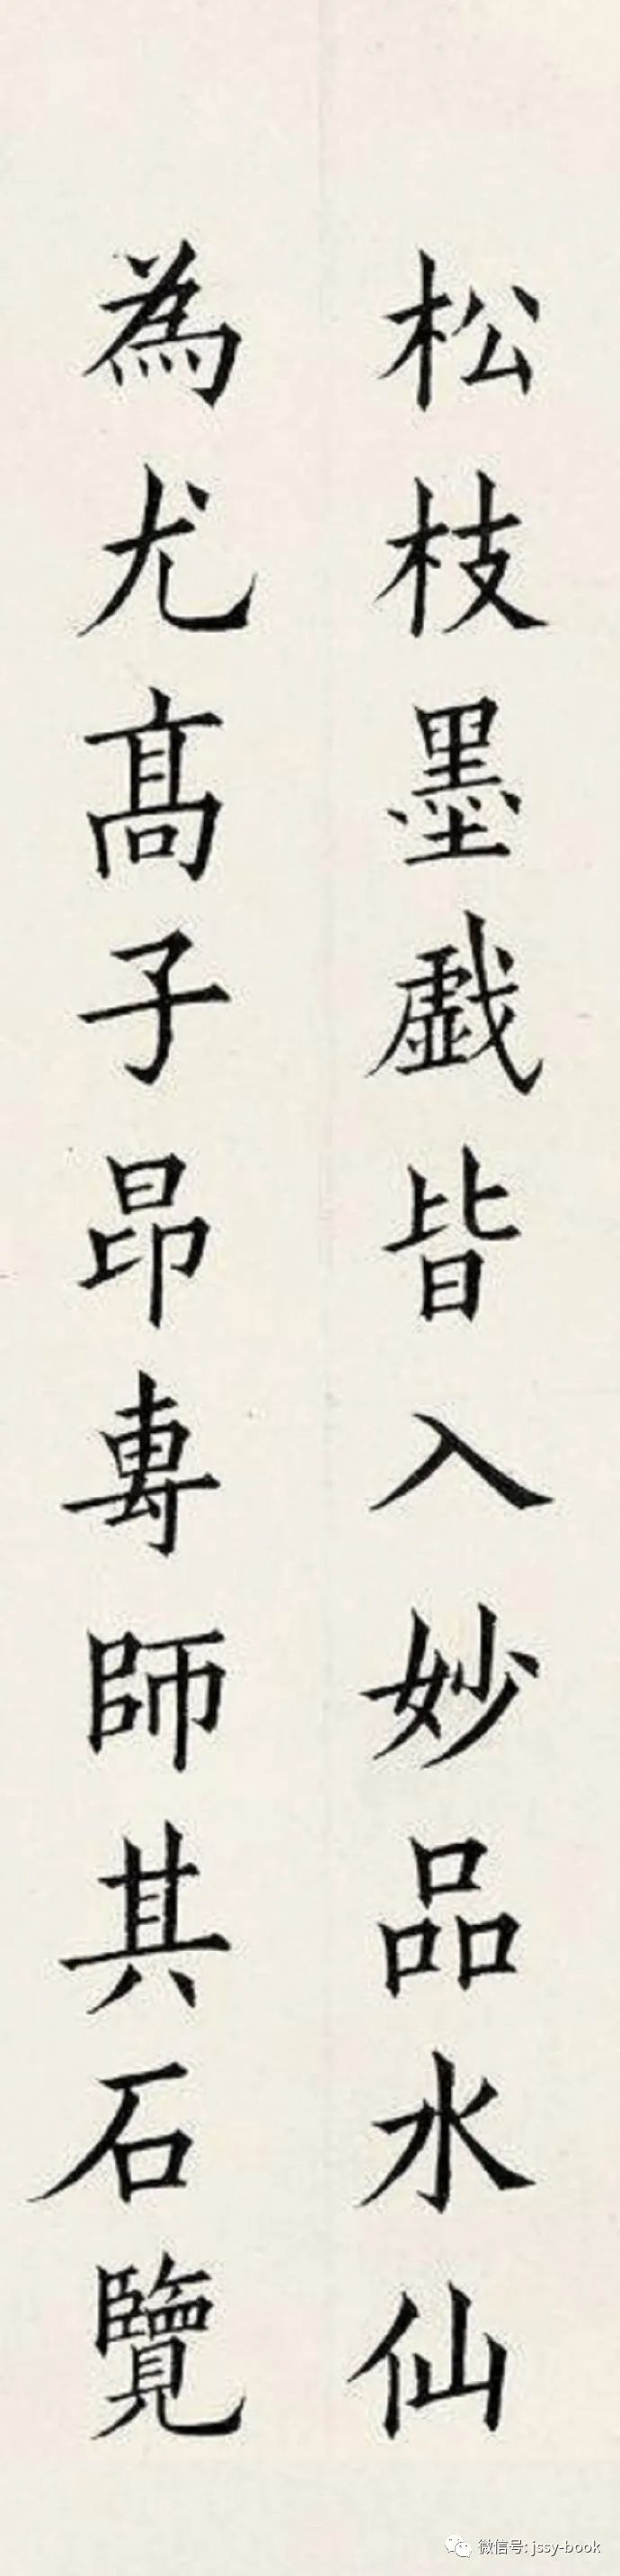 松枝墨戯皆入妙品水仙
為尤髙子昂専師其石覽
微信号: jssy-book